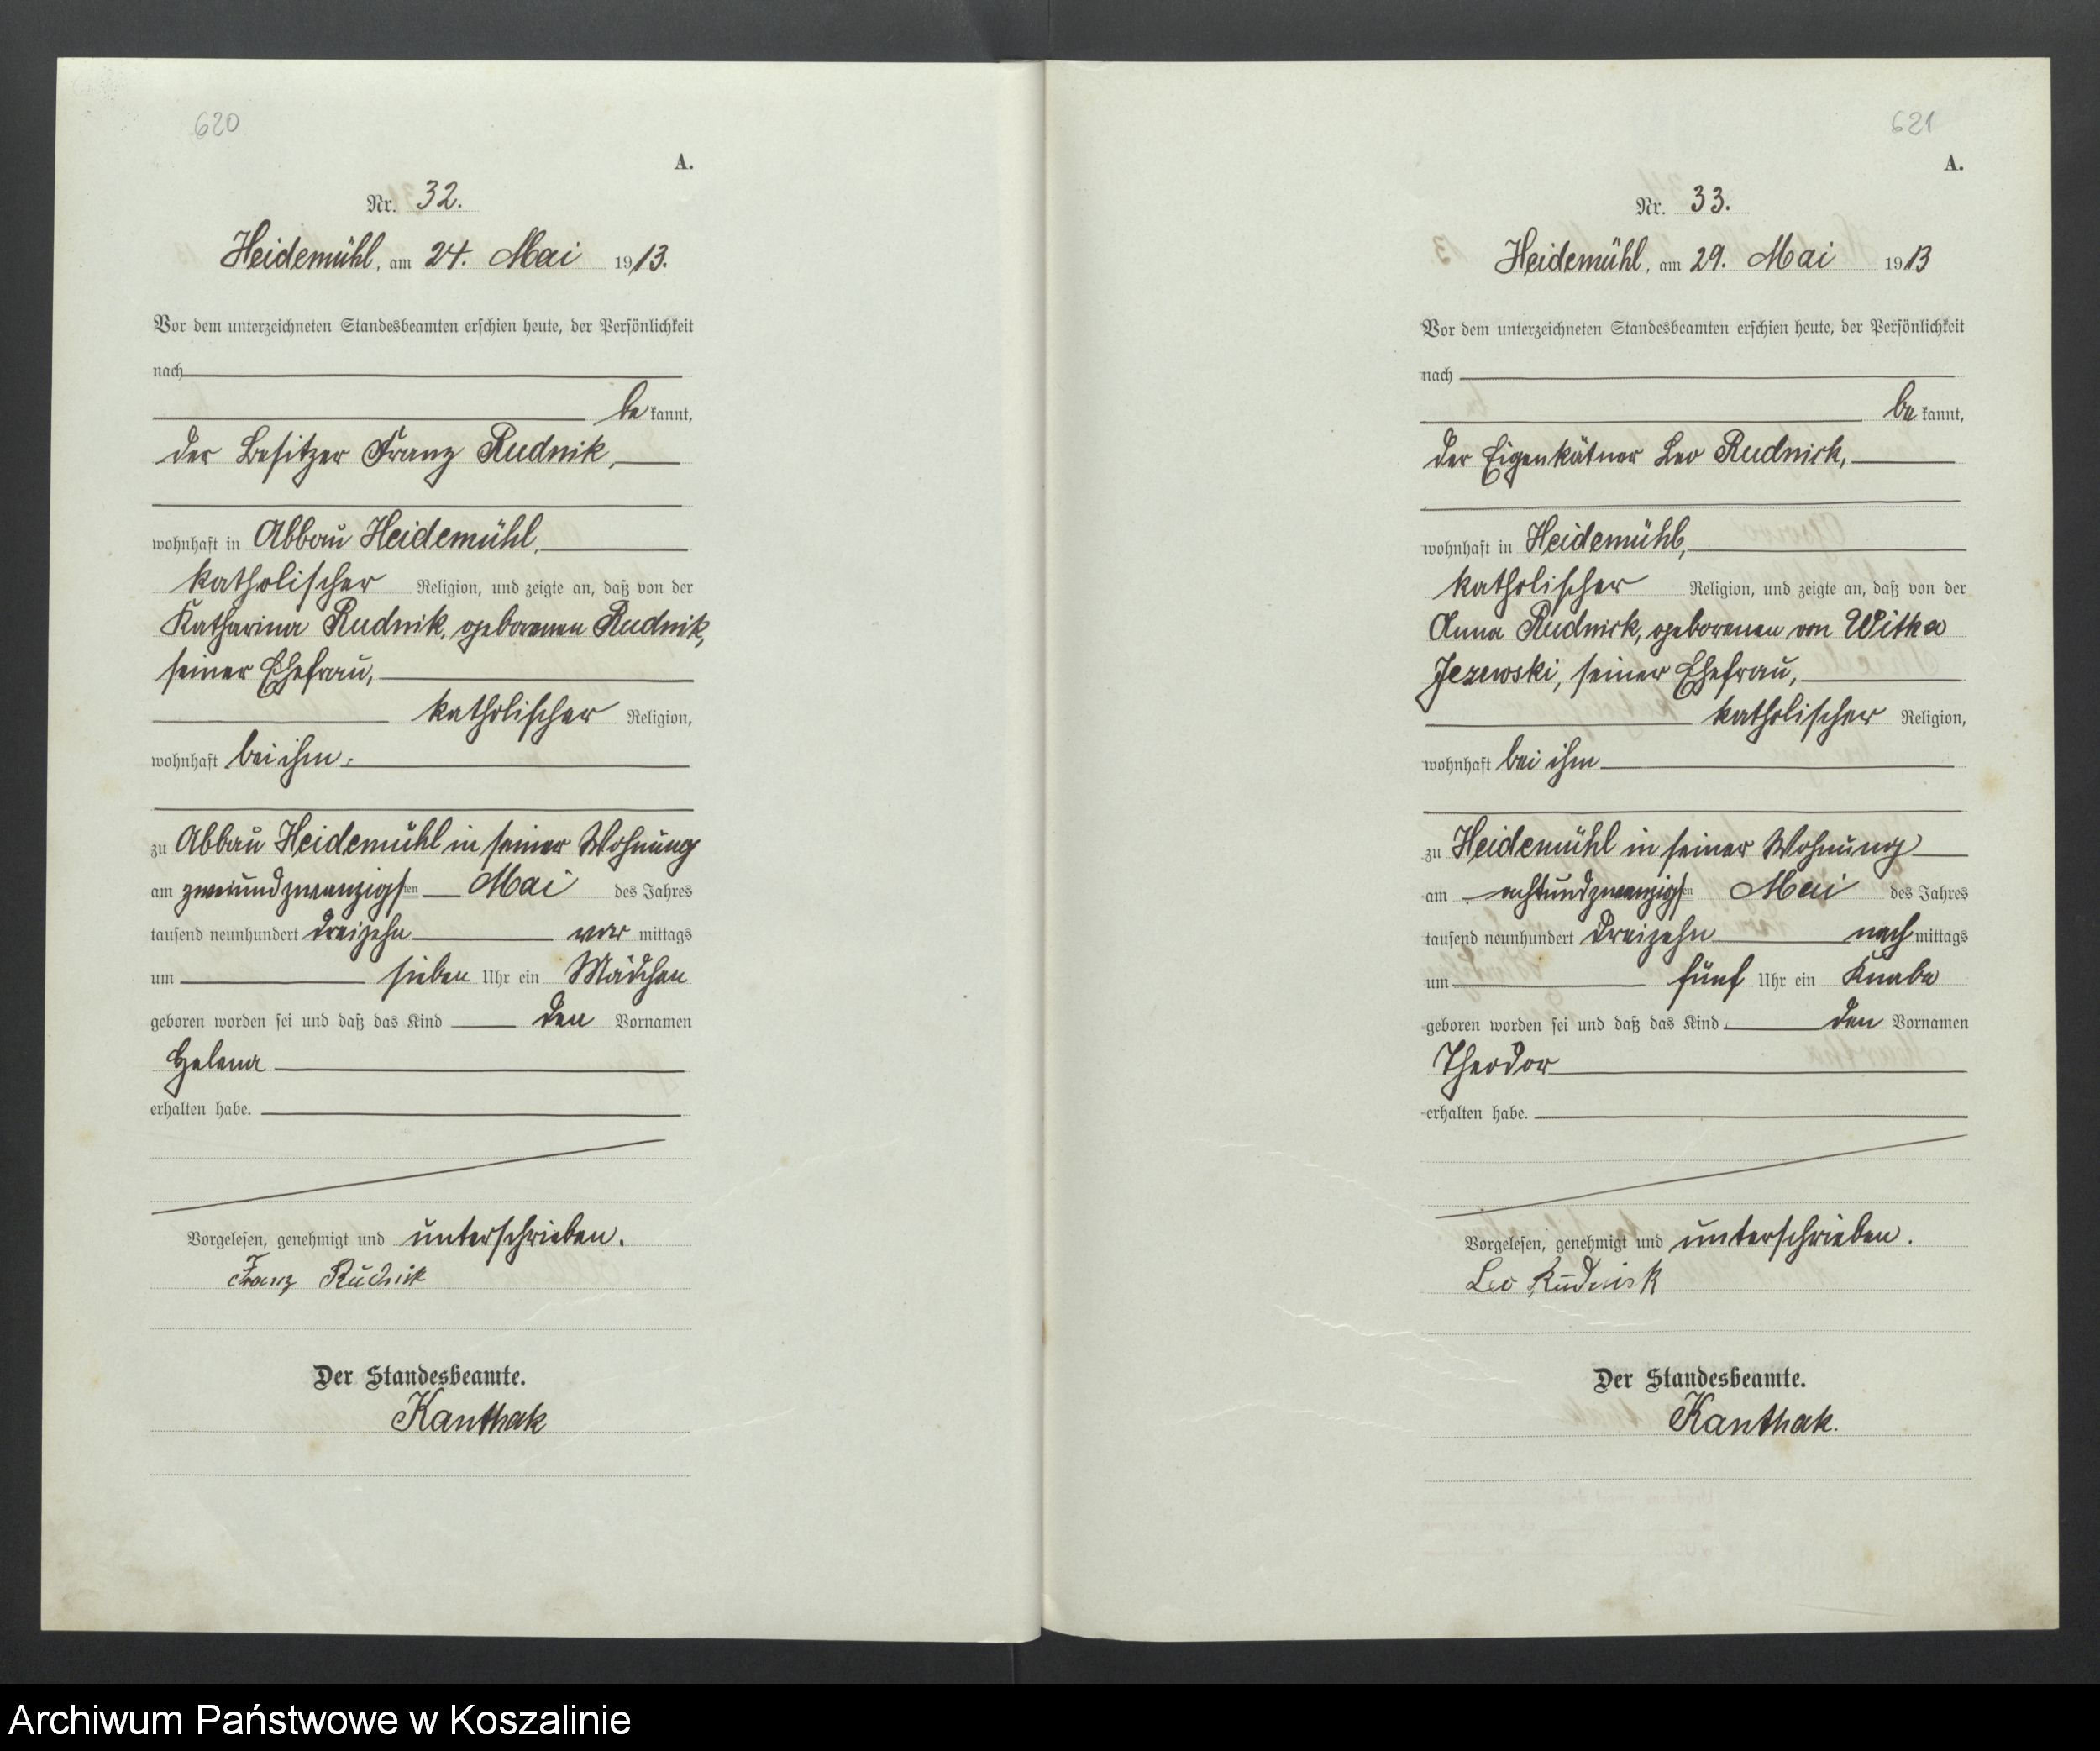 620
A.
Nr. 32.
Heidemühl, am 24. Mai 1913.
Vor dem unterzeichneten Standesbeamten erschien heute, der Persönlichkeit
nach
be kannt,
der Besitzer Franz Rudnik,
wohnhaft in Abbau Heidemühl,
katholischer Religion, und zeigte an, daß von der
Katharina Rudnik, geborenen Rudnik,
seiner Ehefrau,
katholischer Religion,
wohnhaft bei ihm.
zu Abbau Heidemühl in seiner Wohnung
am zweiundzwanzigsten Mai des Jahres
tausend neunhundert dreizehn vor mittags
um sieben Uhr ein Mädchen
geboren worden sei und daß das Kind den Vornamen
Helena
erhalten habe.
Vorgelesen, genehmigt und unterschrieben.
Franz Rudnik
Der Standesbeamte.
Kanthak
621
A.
Nr. 33.
Heidemühl, am 29. Mai 1913
Vor dem unterzeichneten Standesbeamten erschien heute, der Persönlichkeit
nach
be kannt,
der Eigenkätner Leo Rudnick,
wohnhaft in Heidemühl,
katholischer Religion, und zeigte an, daß von der
Anna Rudnick, geborenen von Witka
Jezewski, seiner Ehefrau,
katholischer Religion,
wohnhaft bei ihm
zu Heidemühl in seiner Wohnung
am achtundzwanzigsten Mai des Jahres
tausend neunhundert dreizehn nach mittags
um fünf Uhr ein Knabe
geboren worden sei und daß das Kind den Vornamen
Theodor
erhalten habe.
Vorgelesen, genehmigt und unterschrieben.
Leo Rudnick
Der Standesbeamte.
Kanthak.
Archiwum Państwowe w Koszalinie